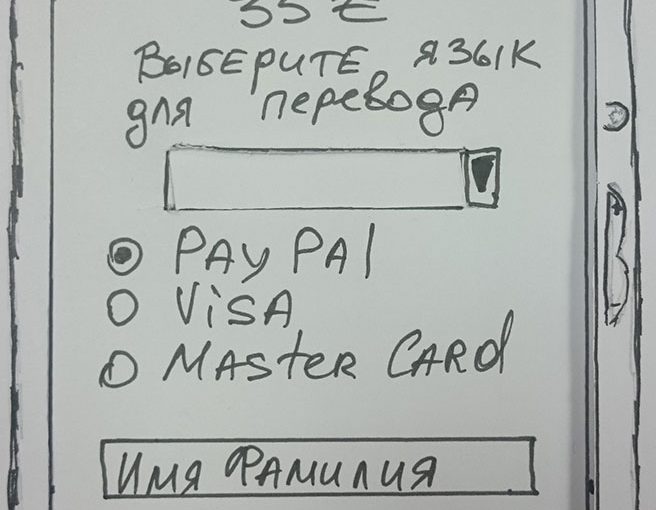 35 €
ВЫБЕРИТЕ ЯЗЫК
для перевода
PAYPAl
ViSA
MASteR CARd
ИМЯ ФАМИЛИЯ